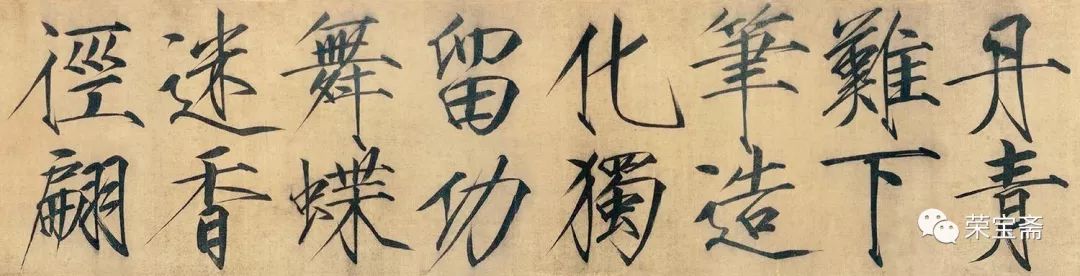 丹青
難下
筆造
化獨
留功
舞蝶
迷香
徑翩
荣宝斋